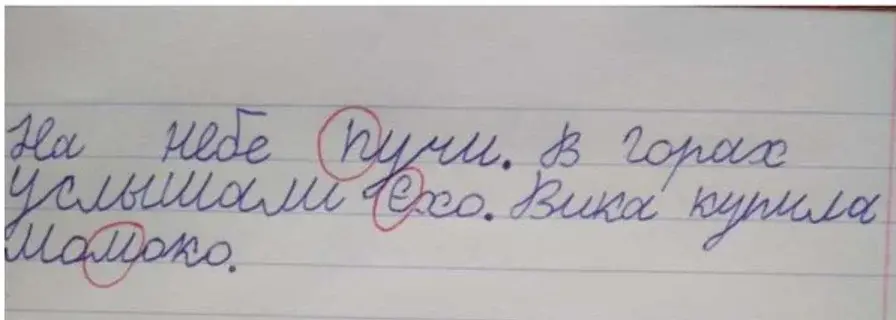 На небе пучи. В горах
услышали ехо. Вика купила
мамоко.